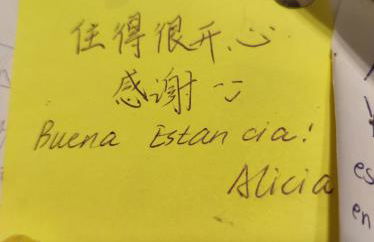 住得很开心
感谢 ¨⌣
Buena Estancia!
Alicia
es
en